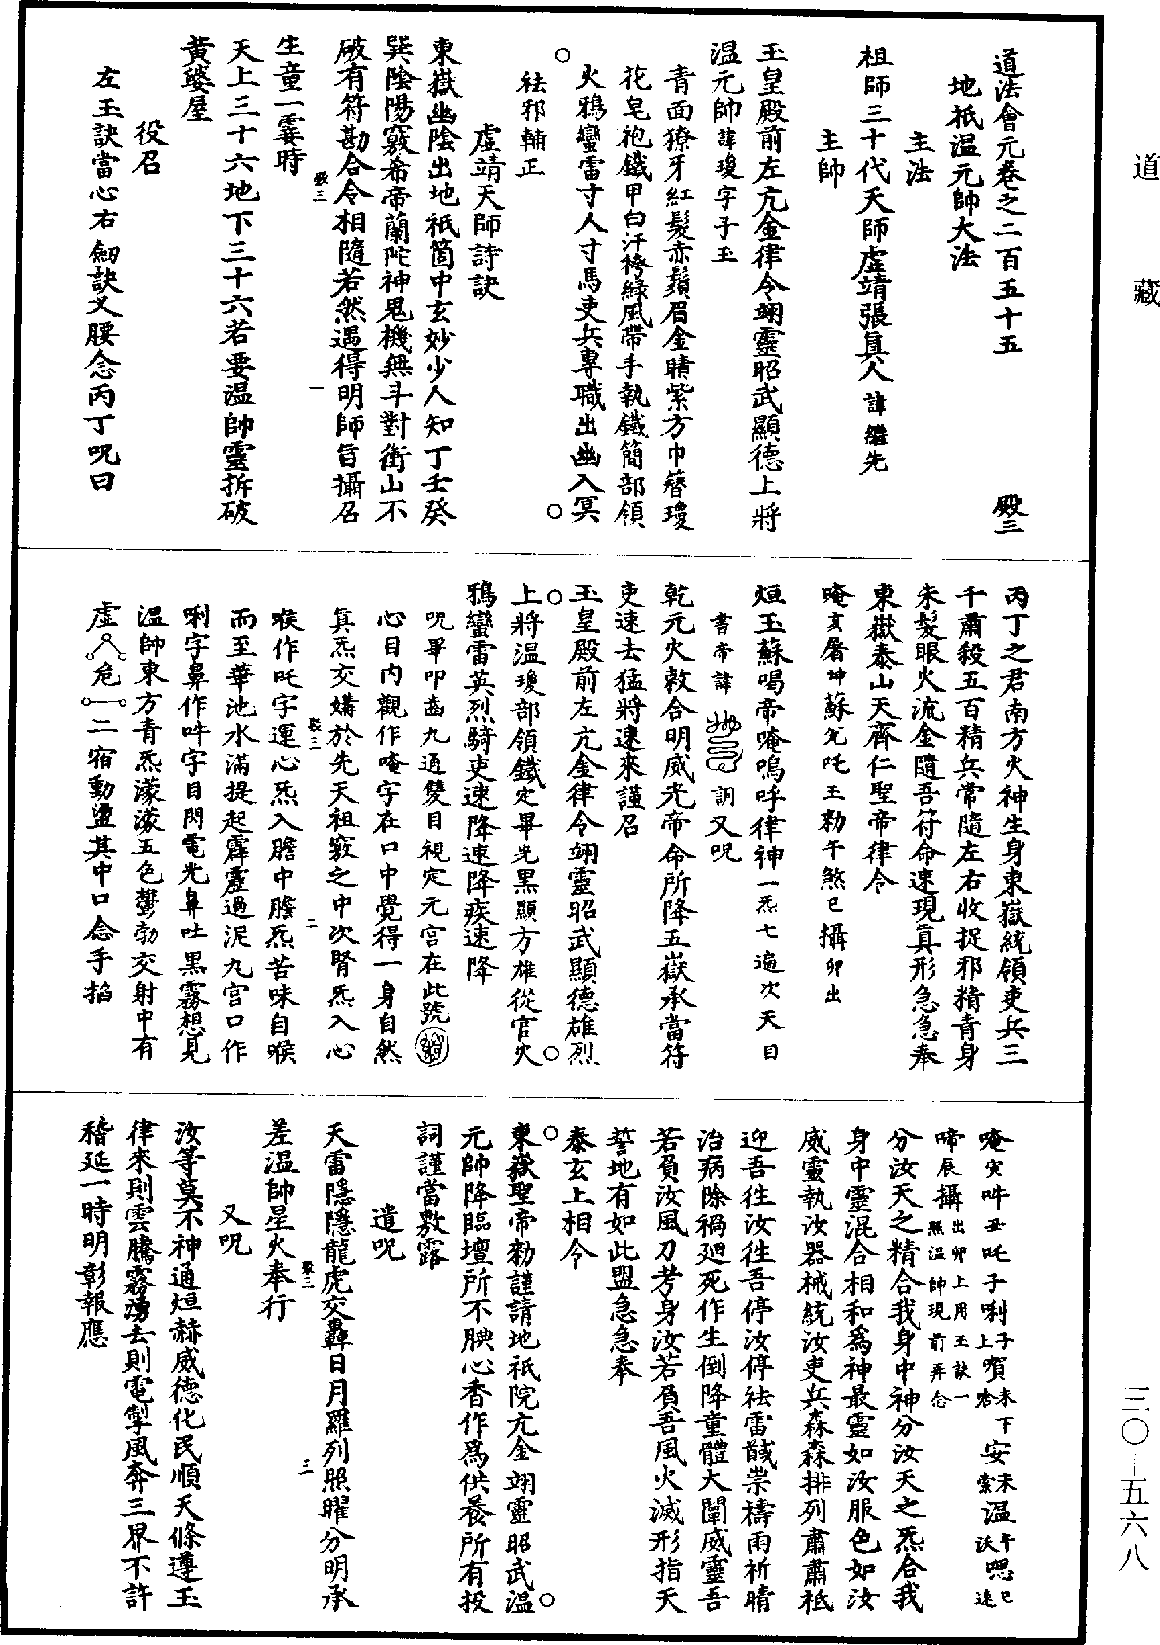 道藏
三〇—五六八
道法會元卷之二百五十五　殿三
地祇溫元帥大法
主法
祖師三十代天師虛靖張真人諱繼先
主帥
玉皇殿前左亢金律令翊靈昭武顯德上將
溫元帥諱瓊字子玉
青面獠牙紅髮赤鬚眉金睛紫方巾簪瓊
花皂袍鐵甲白汗袴綠風帶手執鐵簡部領
火鴉蠻雷寸人寸馬吏兵專職出幽入冥
袪邪輔正
虛靖天師詩訣
東嶽幽陰出地祇箇中玄妙少人知丁壬癸
巽陰陽竅希帝蘭陀神鬼機無斗對衝山不
破有符勘合令相隨若然遇得明師旨攝召
生童一霎時
天上三十六地下三十六若要溫帥靈拆破
黃婆屋
役召
左玉訣當心右劒訣叉腰念丙丁呪曰
丙丁之君南方火神生身東嶽統領吏兵三
千肅殺五百精兵常隨左右收捉邪精青身
朱髮眼火流金隨吾符命速現真形急急奉
東嶽泰山天齊仁聖帝律令
唵亥屠坤蘇允吒玉勑午煞巳攝卯出
烜玉蘇喝帝唵嗚呼律神一炁七遍次天目
書帝諱訓又呪
乾元火敕合明威光帝命所降五嶽承當符
吏速去猛將速來謹召
玉皇殿前左亢金律令翊靈昭武顯德雄烈
上將溫瓊部領鐵定畢光黑顯方雄從官火
鴉蠻雷英烈騎吏速降速降疾速降
呪畢叩齒九通雙目視定元宮在此號
心目內觀作唵字在口中覺得一身自然
真炁交媾於先天祖竅之中次腎炁入心
喉作吒字運心炁入膽中膽炁苦味自喉
而至華池水滿提起霹靂過泥丸宮口作
唎字鼻作吽字目閃電光鼻吐黑霧想見
溫帥東方青炁濛濛五色鬱勃交射中有
虛危二宿動盪其中口念手掐
唵寅吽丑吒子唎子上㗲未下安未索溫午沃嗯巳遠
啼辰攝出卯上用玉訣一熙溫帥現前再念
分汝天之精合我身中神分汝天之炁合我
身中靈混合相和為神最靈如汝服色如汝
威靈執汝器械統汝吏兵森森排列肅肅祇
迎吾往汝往吾停汝停袪雷馘祟禱雨祈晴
治病除禍廻死作生倒降童體大闡威靈吾
若負汝風刀考身汝若負吾風火滅形指天
誓地有如此盟急急奉
泰玄上相令
東嶽聖帝勑謹請地祇院亢金翊靈昭武溫
元帥降臨壇所不腆心香作為供養所有投
詞謹當敷露
遣呪
天雷隱隱龍虎交轟日月羅列照曜分明承
差溫帥星火奉行
又呪
汝等莫不神通烜赫威德化民順天條遵玉
律來則雲騰霧湧去則電掣風奔三界不許
稽延一時明彰報應